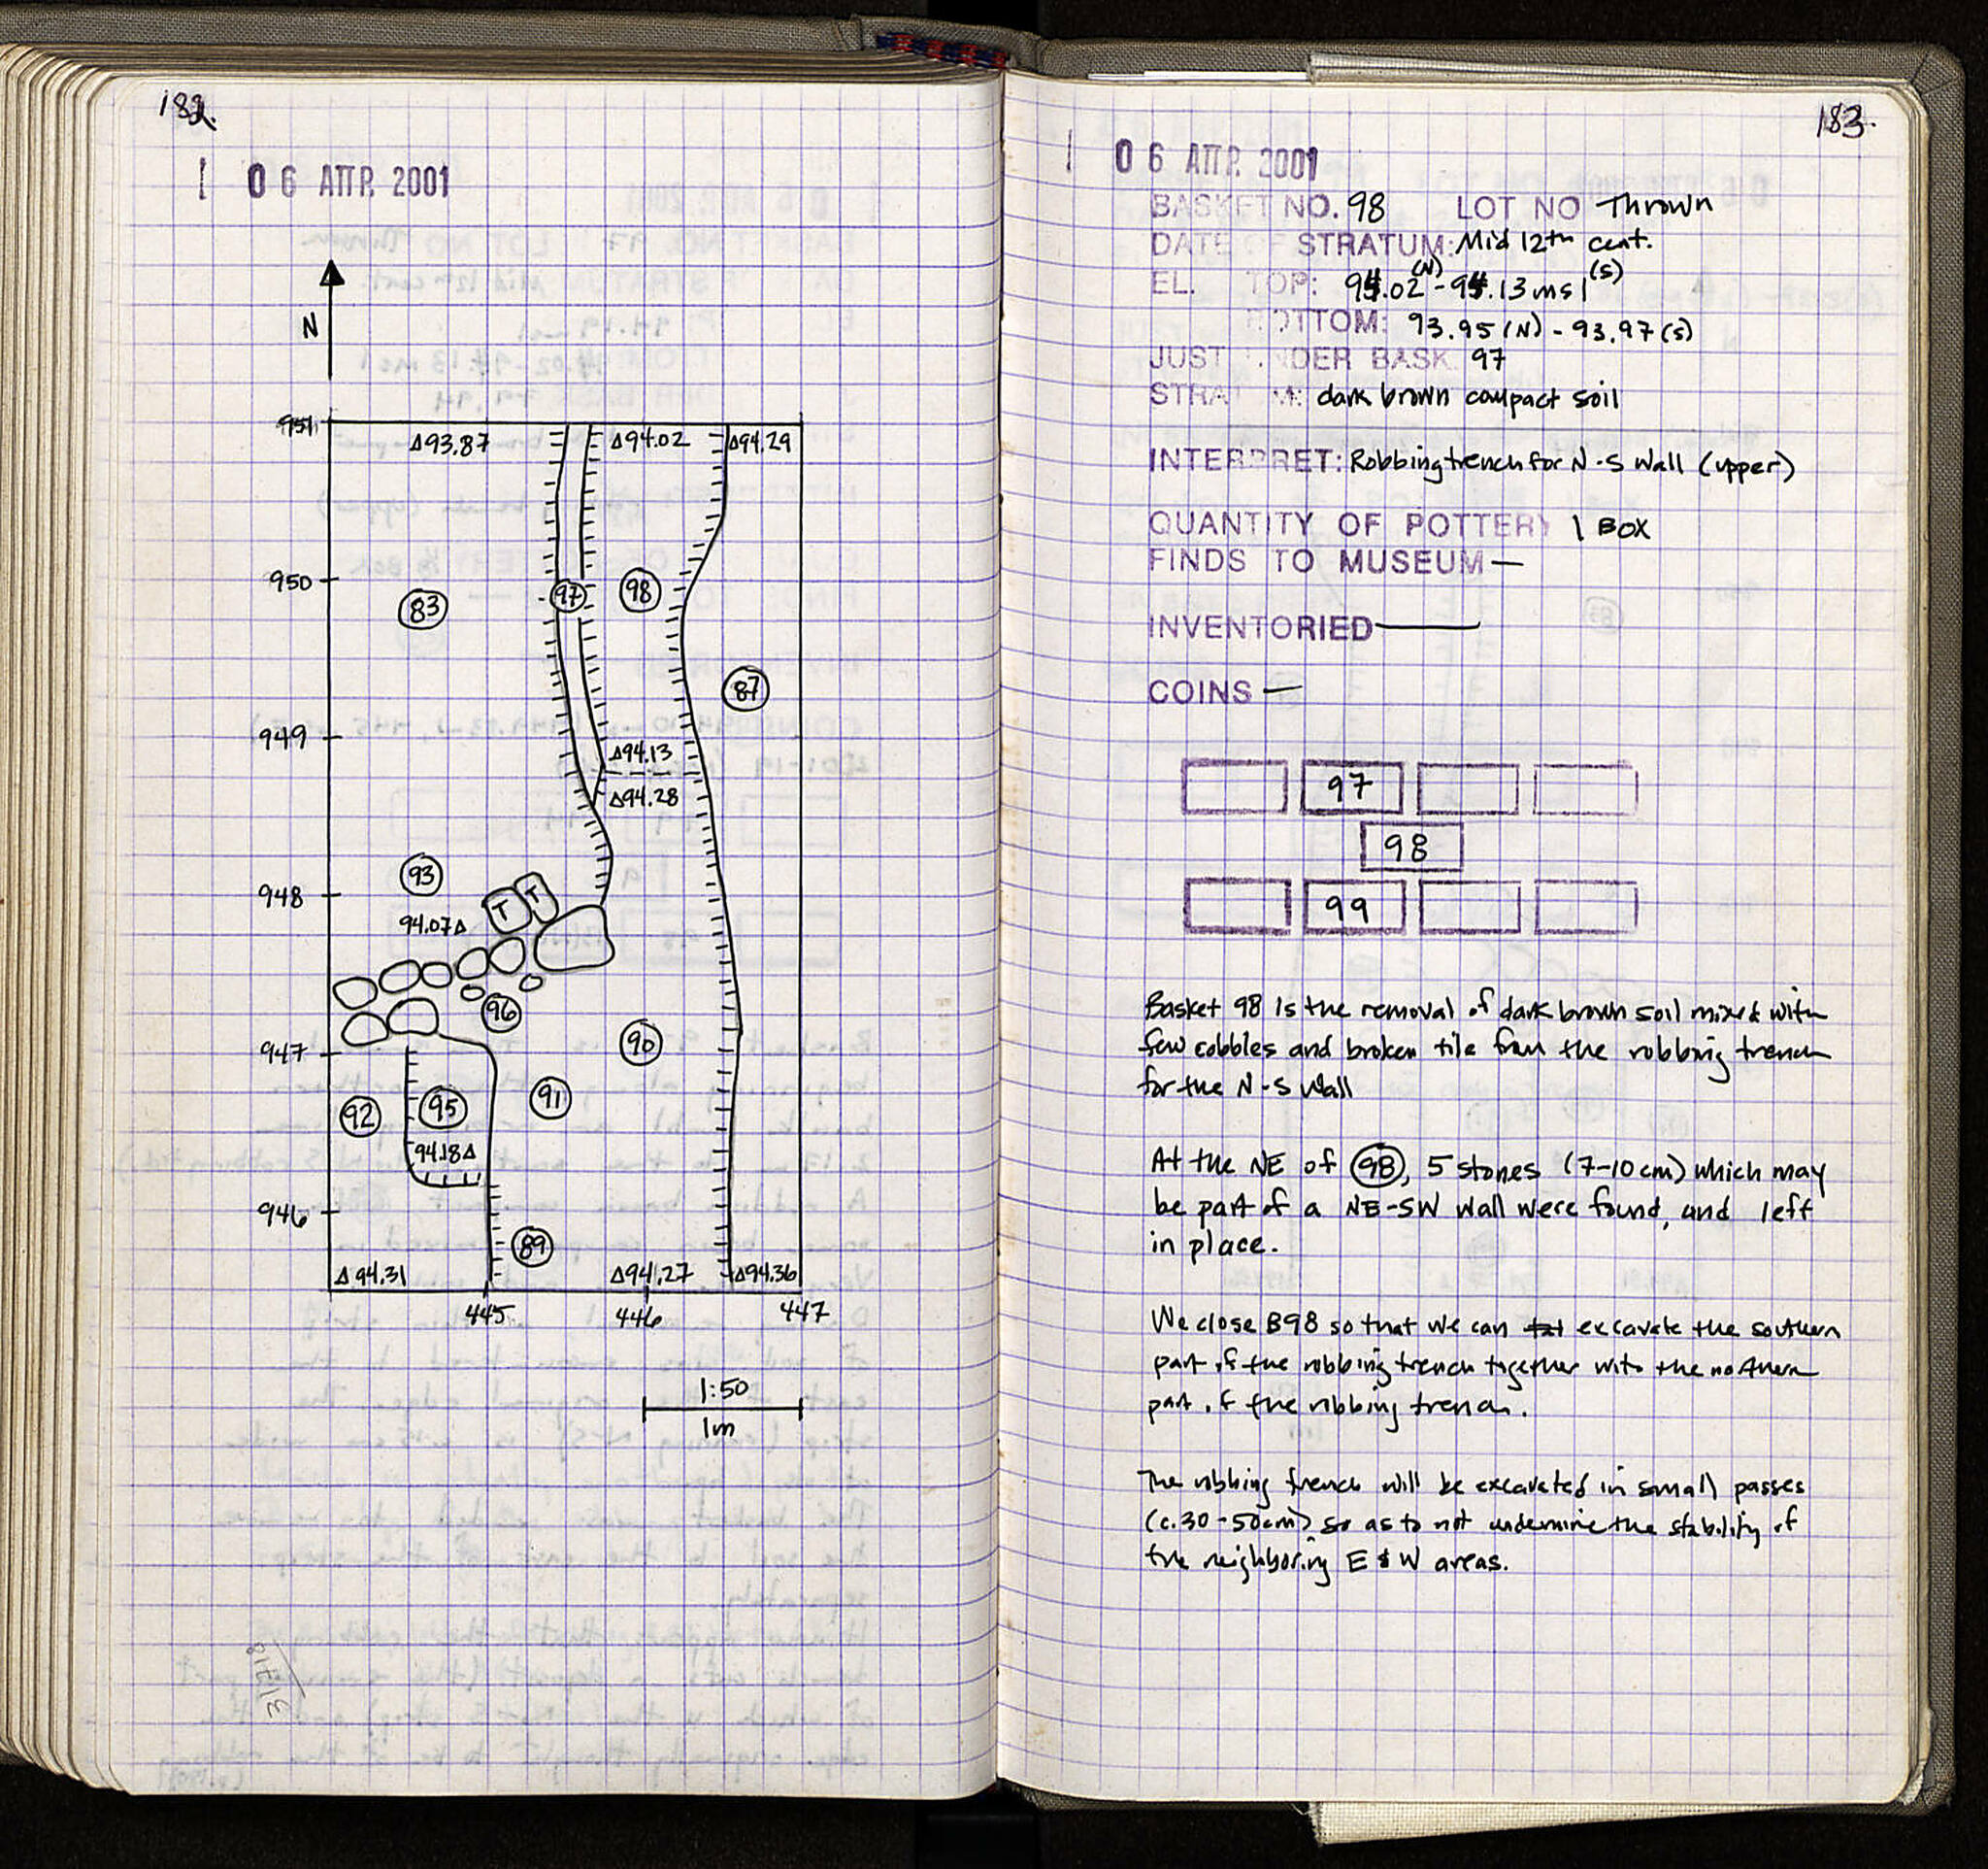 182.
06 ΑΠΡ. 2001
N
951
Δ93.87
Δ94.02
Δ94.29
950
83
97
98
87
949
Δ94.13
Δ94.28
93
948
T T
94.07Δ
96
947
90
92
95
91
94.18Δ
946
89
Δ94.31
Δ94.27
Δ94.36
445
446
447
1:50
1m
183.
06 ΑΠΡ. 2001
BASKET NO. 98 LOT NO Thrown
DATE OF STRATUM: Mid 12th cent.
EL. TOP: 94.02 (N) - 94.13 msl (S)
BOTTOM: 93.95 (N) - 93.97 (S)
JUST UNDER BASK. 97
STRATUM: dark brown compact soil
INTERPRET: Robbing trench for N-S Wall (upper)
QUANTITY OF POTTERY 1 BOX
FINDS TO MUSEUM —
INVENTORIED —
COINS —
97
98
99
Basket 98 is the removal of dark brown soil mixed with
few cobbles and broken tile from the robbing trench
for the N-S Wall
At the NE of 98, 5 stones (7-10cm) which may
be part of a NE-SW wall were found, and left
in place.
We close B98 so that we can excavate the southern
part of the robbing trench together with the northern
part of the robbing trench.
The robbing trench will be excavated in small passes
(c. 30-50cm) so as to not undermine the stability of
the neighboring E & W areas.